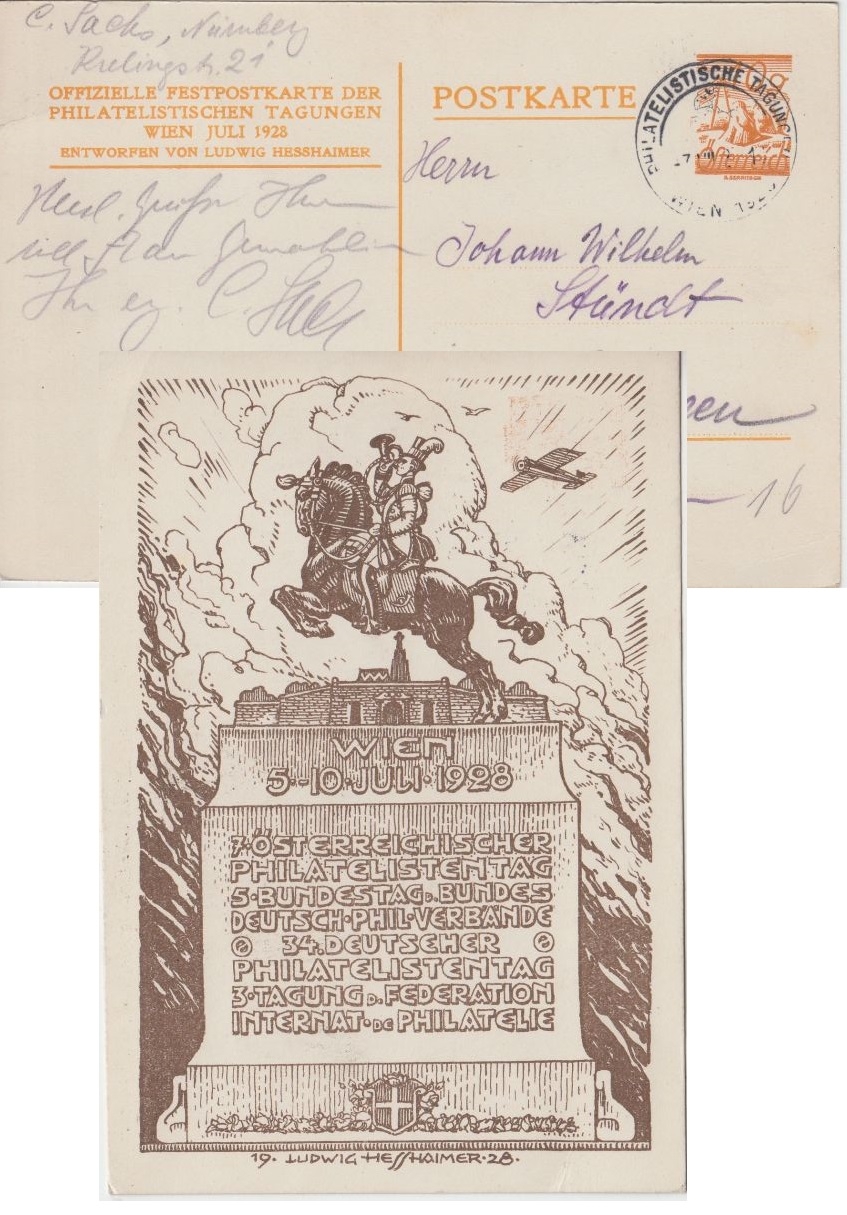 C. Sachs, Nürnberg
Krelingstr. 21
OFFIZIELLE FESTPOSTKARTE DER
PHILATELISTISCHEN TAGUNGEN
WIEN JULI 1928
ENTWORFEN VON LUDWIG HESSHAIMER
POSTKARTE
PHILATELISTISCHE TAGUNGEN
WIEN 1928
Österreich
Herrn
Johann Wilhelm
Stündt
en
16
C. Sachs
WIEN
5.-10·JULI·1928
7·ÖSTERREICHISCHER
PHILATELISTENTAG
5·BUNDESTAG D. BUNDES
DEUTSCH·PHIL·VERBÄNDE
34. DEUTSCHER
PHILATELISTENTAG
3·TAGUNG D. FEDERATION
INTERNAT· DE PHILATELIE
19· LUDWIG HESSHAIMER·28·